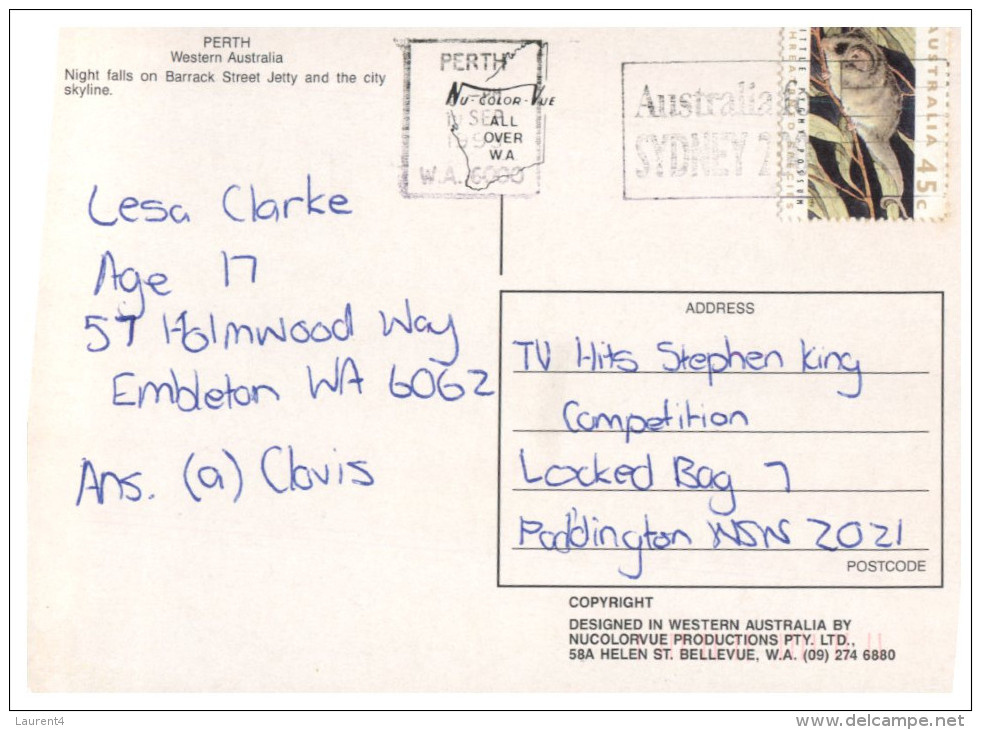 PERTH
Western Australia
Night falls on Barrack Street Jetty and the city
skyline.
PERTH
NU-COLOR-VUE
SEP
ALL
OVER
W.A
W.A. 6000
Australia
SYDNEY
LITTLE PIGMY POSSUM
THREATENED SPECIES
AUSTRALIA 45c
Lesa Clarke
Age 17
57 Holmwood Way
Embleton WA 6062
Ans. (a) Clovis
ADDRESS
TV Hits Stephen King
Competition
Locked Bag 7
Paddington NSW 2021
POSTCODE
COPYRIGHT
DESIGNED IN WESTERN AUSTRALIA BY
NUCOLORVUE PRODUCTIONS PTY. LTD.,
58A HELEN ST. BELLEVUE, W.A. (09) 274 6880
Laurent4
delcampe.net